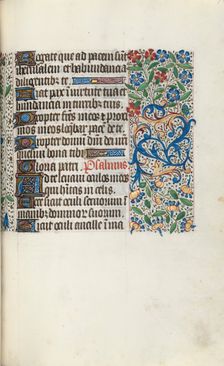 Rogate que ad pacem sunt
iherusalem et habundancia
diligentibus te
Fiat pax in uirtute tua et
habundancia in turribus tuis
Propter fratres meos et proxi
mos meos loquebar pacem de te
Propter domum domini dei
quesiui bona tibi
Gloria patri Psalmus
Ad te leuaui oculos meos
qui habitas in celis
Ecce sicut oculi seruorum in
manibus dominorum suorum
Sicut oculi ancille in ma